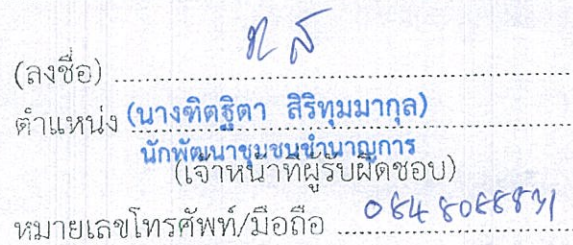 (ลงชื่อ)
ตำแหน่ง (นางฑิตฐิตา สิริทุมมากุล)
นักพัฒนาชุมชนชำนาญการ
(เจ้าหน้าที่ผู้รับผิดชอบ)
หมายเลขโทรศัพท์/มือถือ